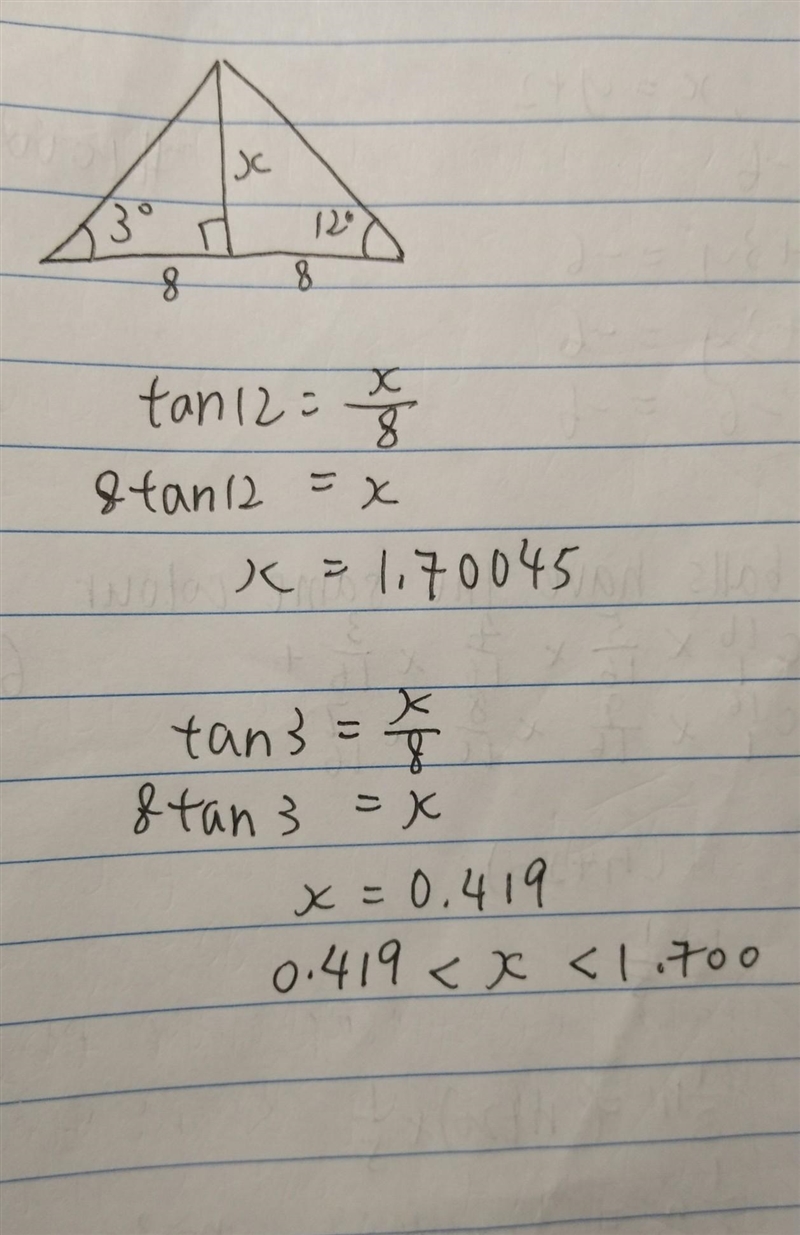 x
3°
12°
8
8
tan12 = x/8
8tan12 = x
x = 1.70045
tan3 = x/8
8tan3 = x
x = 0.419
0.419 < x < 1.700